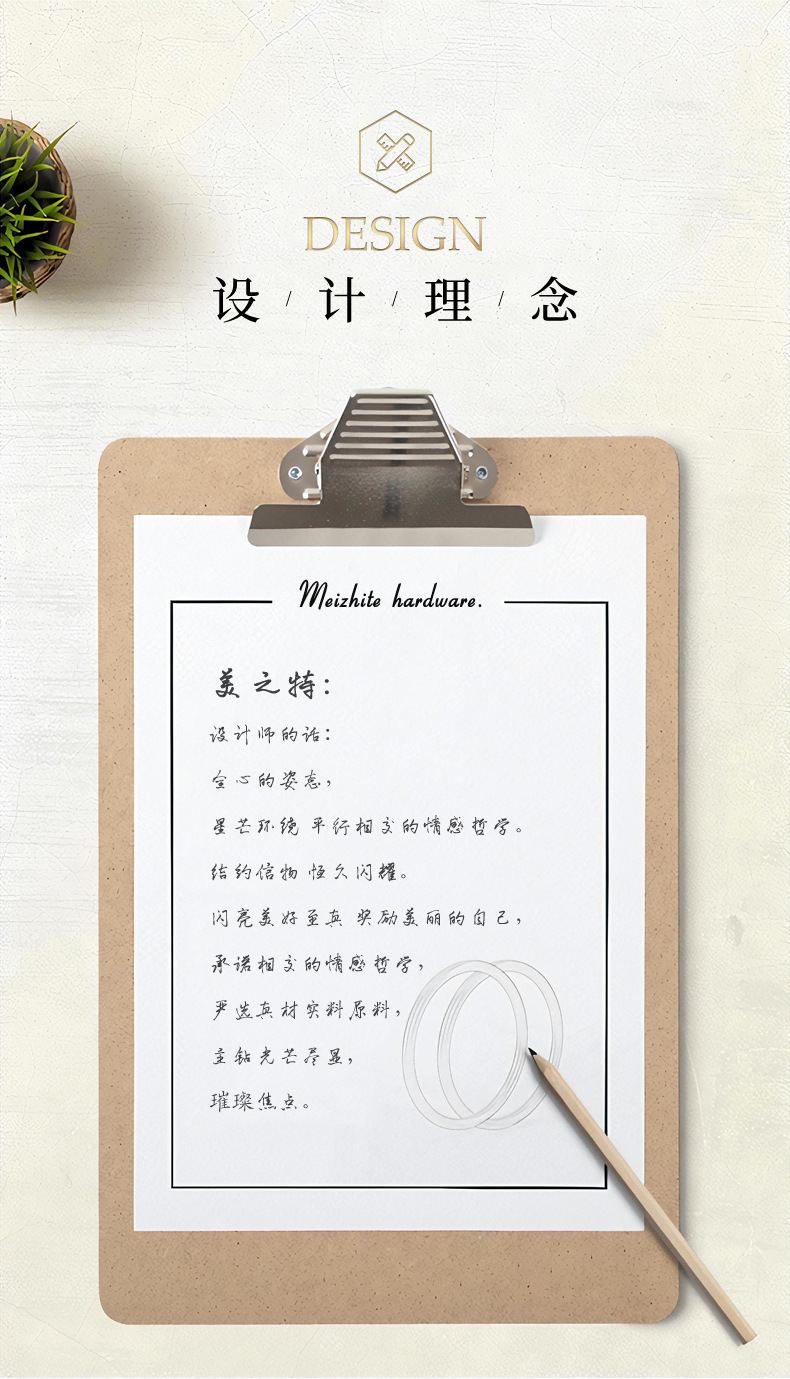 DESIGN
设/计/理/念
Meizhite hardware.
美之特：
设计师的话：
全心的姿态，
星芒环绕 平行相交的情感哲学。
结约信物 恒久闪耀。
闪亮美好至真 奖励美丽的自己，
承诺相交的情感哲学，
严选真材实料原料，
主钻光芒尽显，
璀璨焦点。